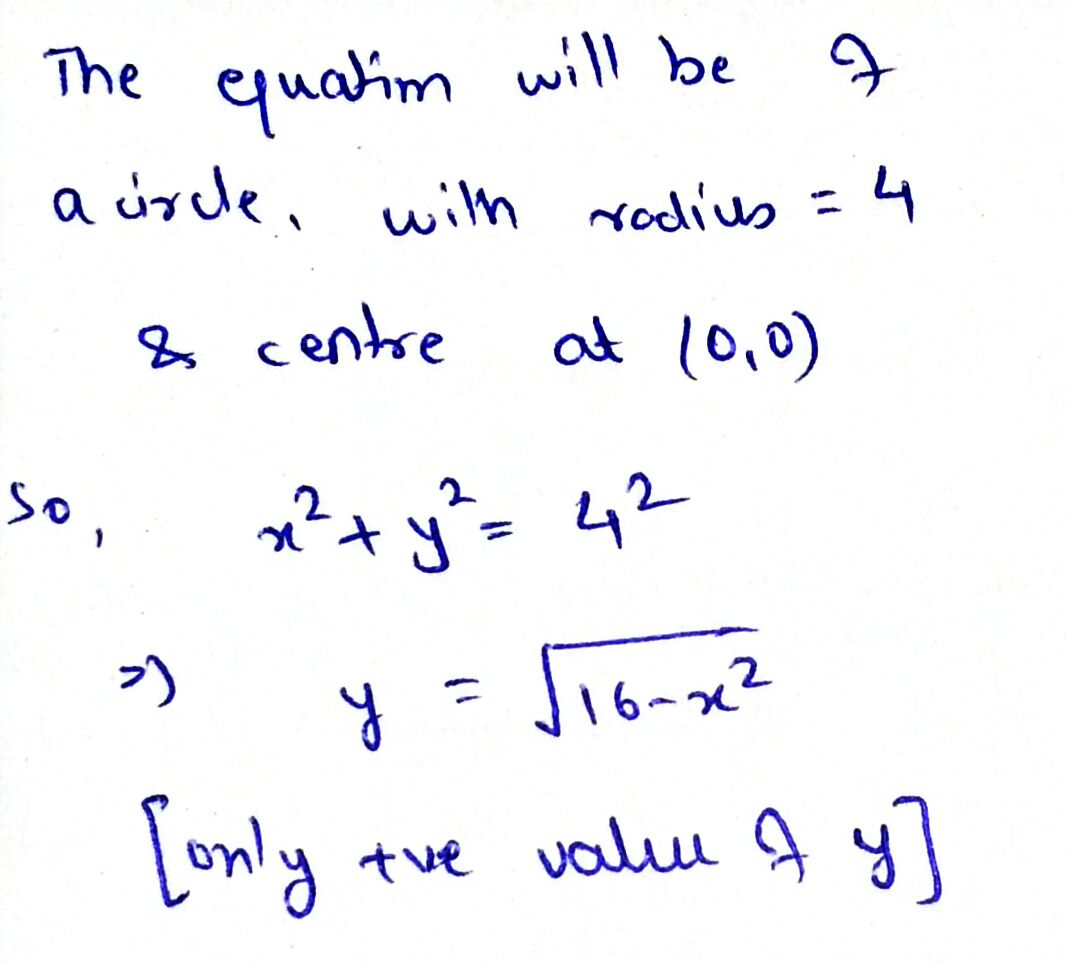 The equation will be of
a circle, with radius = 4
& centre at (0,0)
So, x² + y² = 4²
=) y = √16-x²
[only +ve value of y]